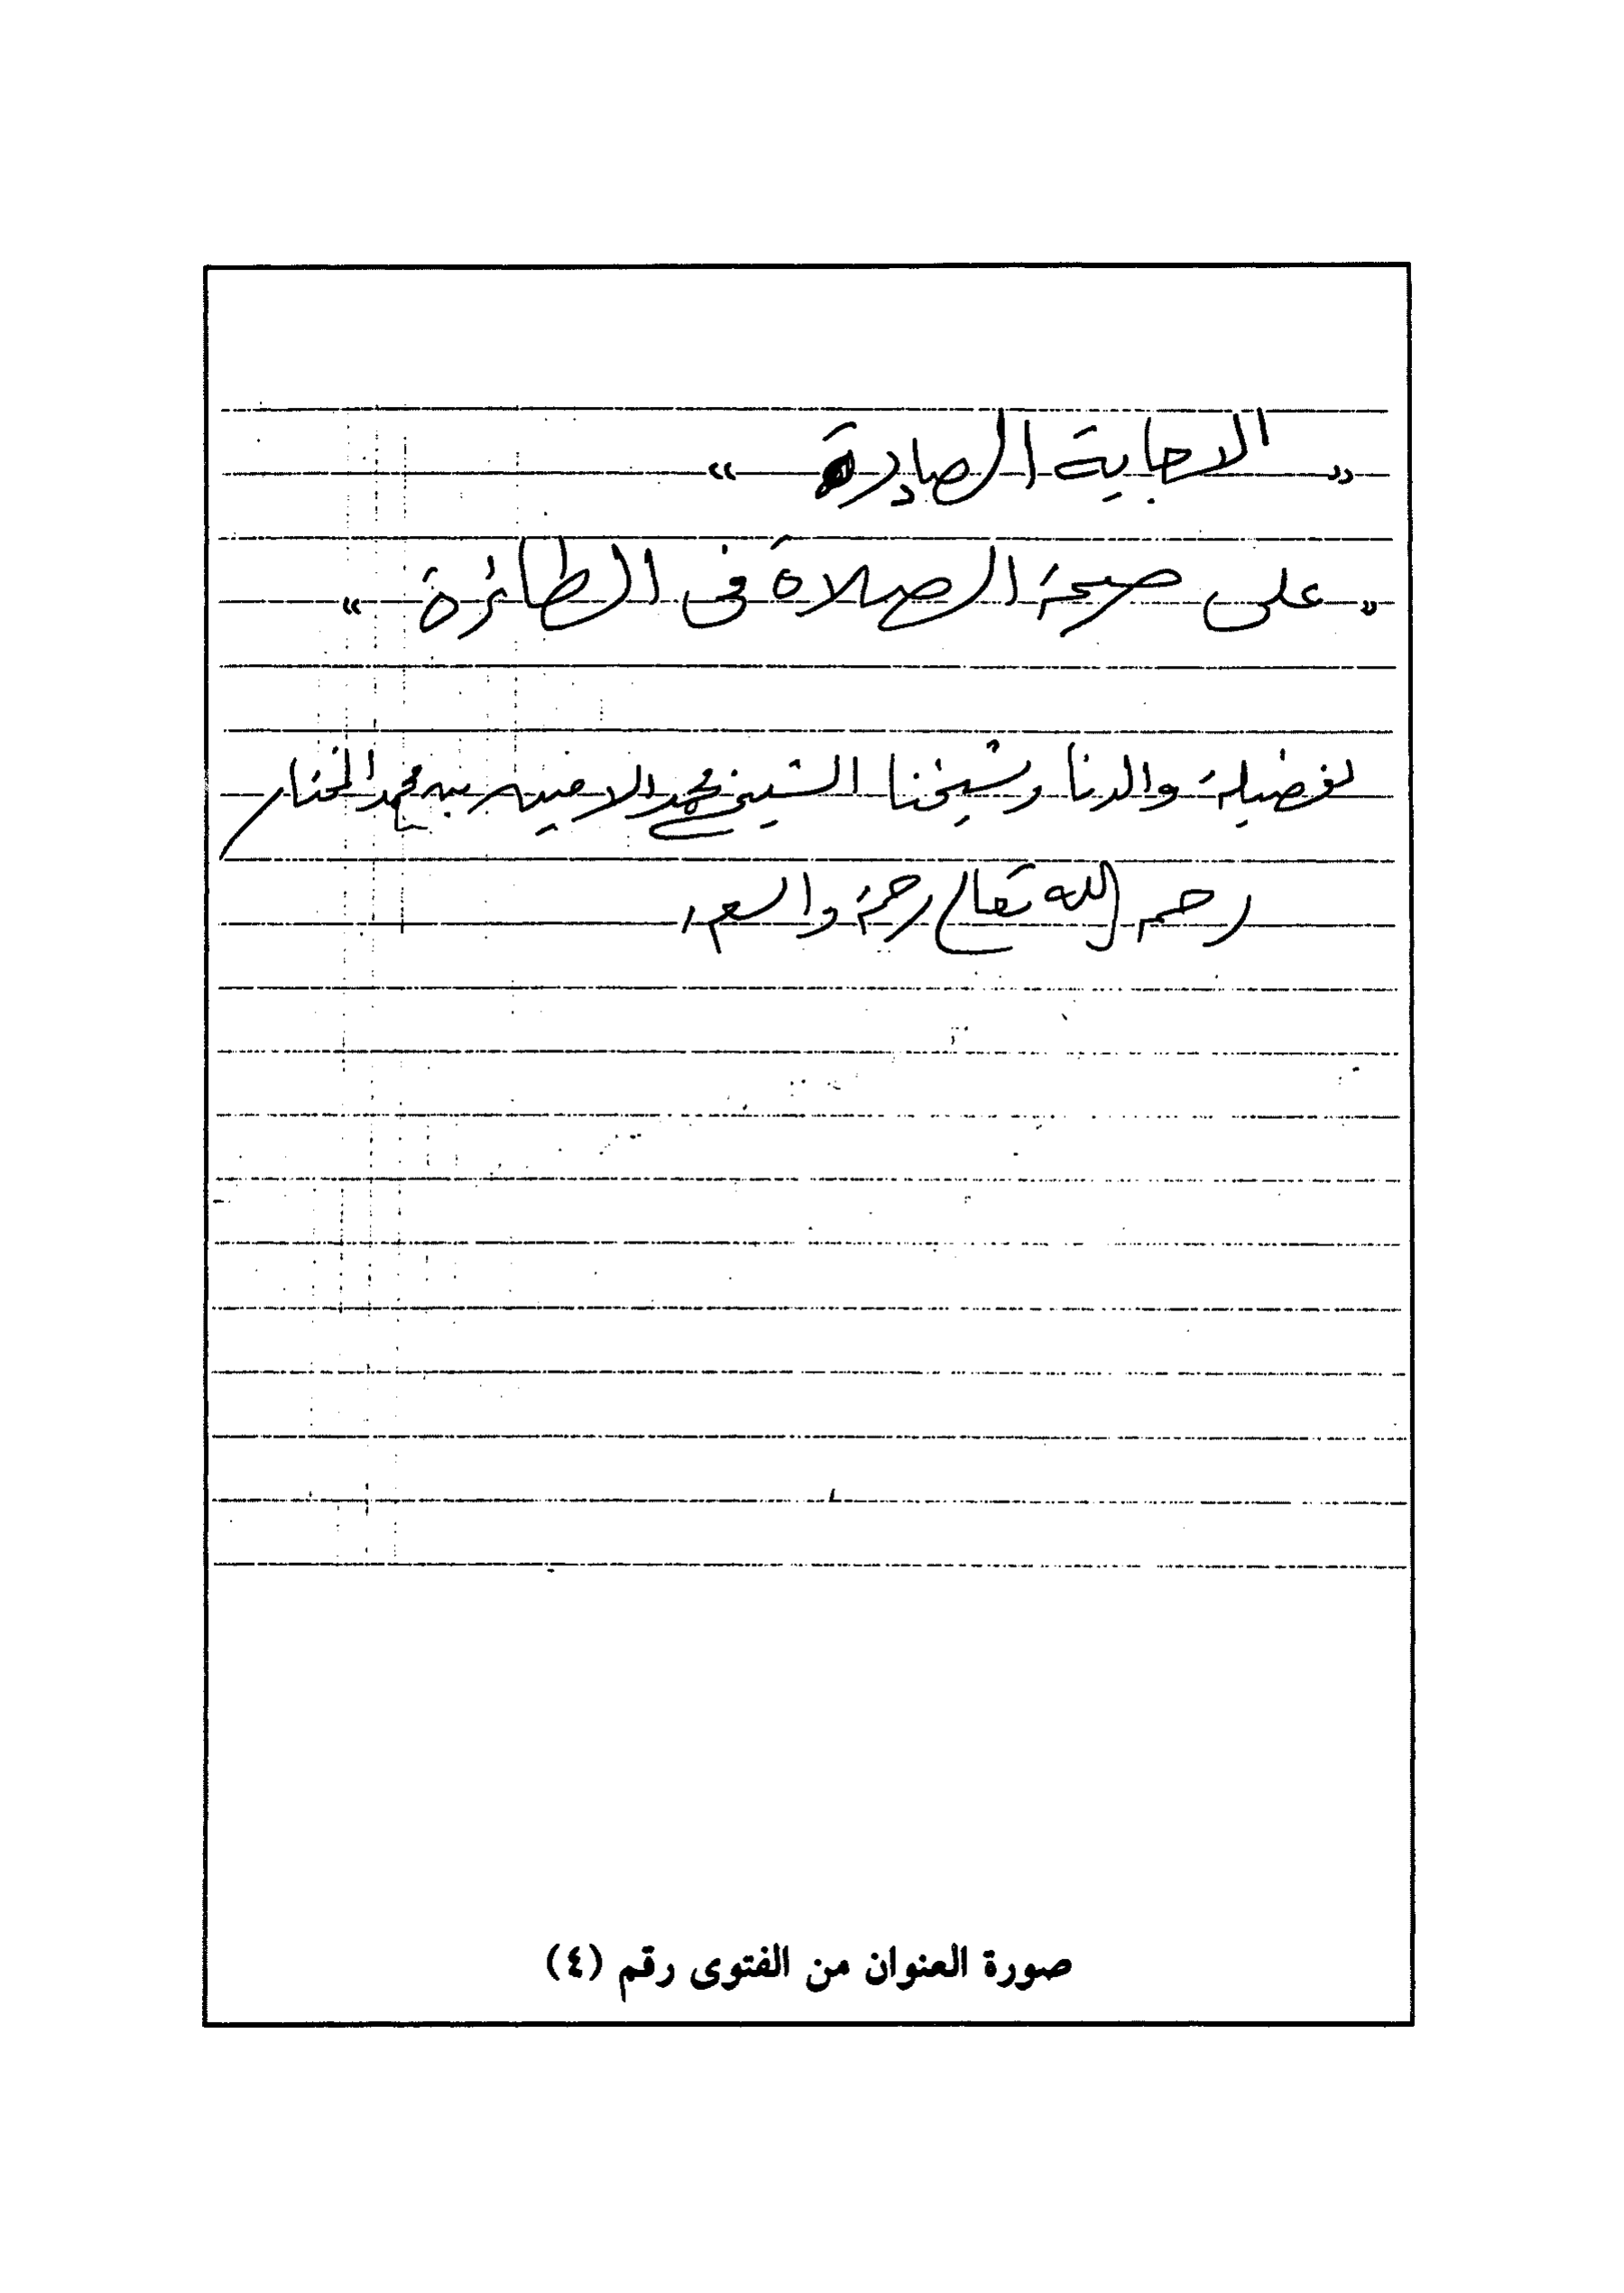 « الاجابة الصادرة »
« على صحة الصلاة فى الطائرة »
لفضيلة والدنا وشيخنا الشيخ محمد الامين بن محمد المختار
رحمه الله تعالى رحمة واسعه
صورة العنوان من الفتوى رقم (٤)